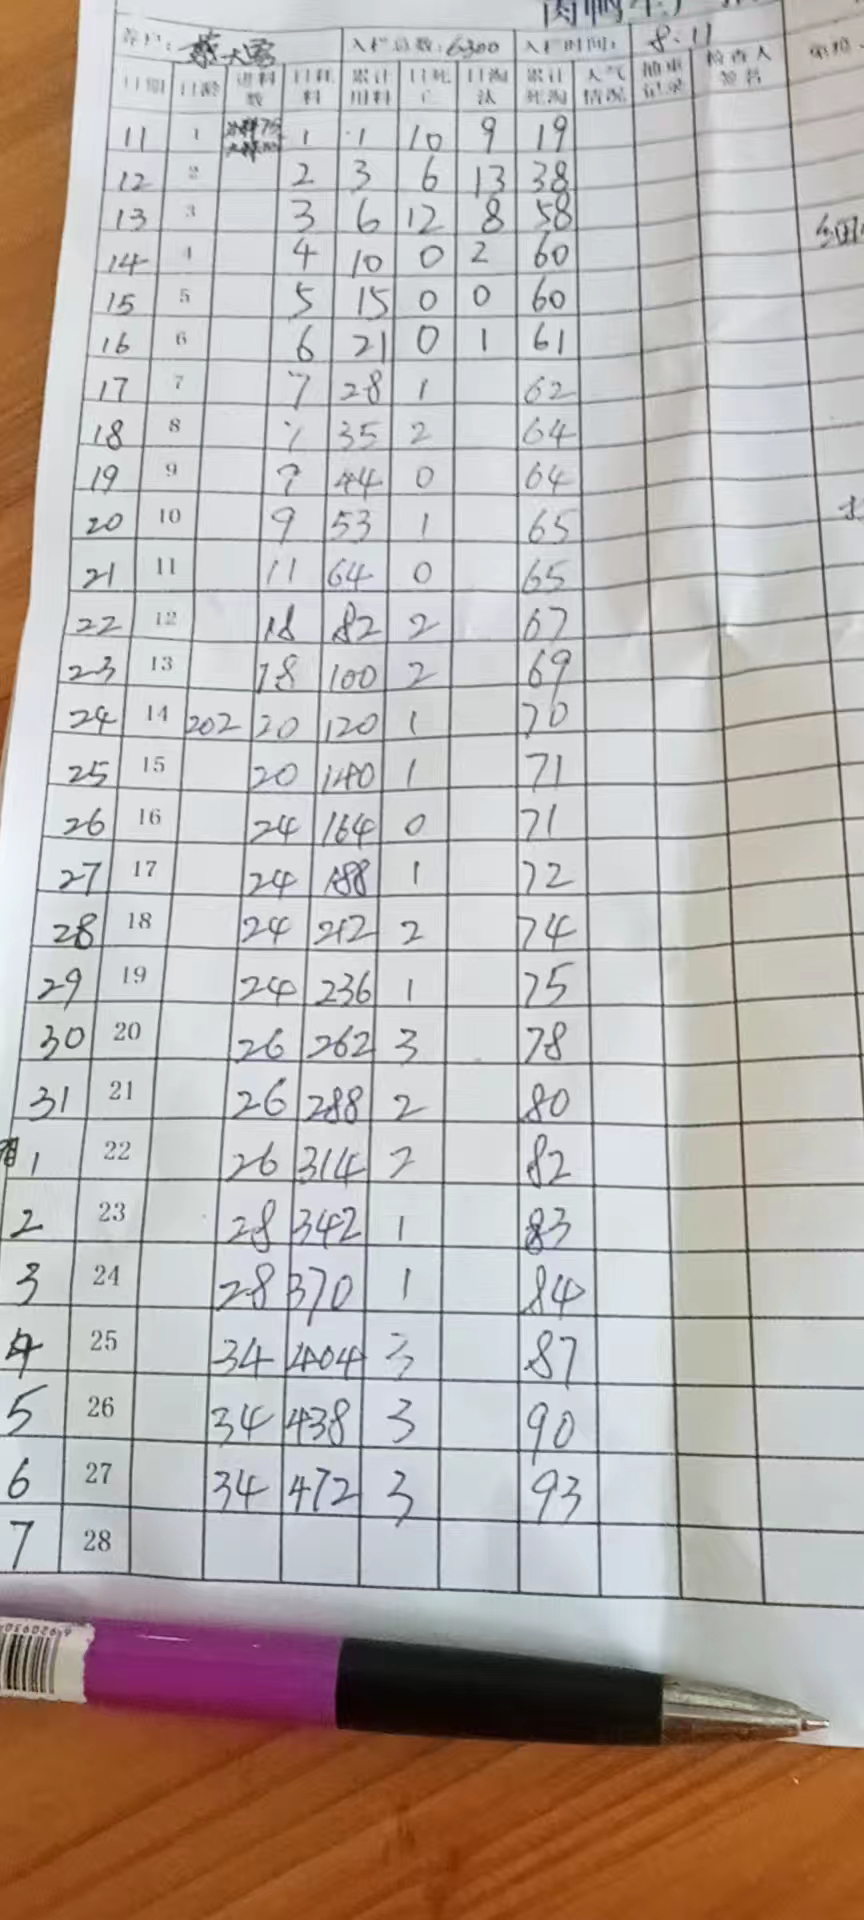 肉鸭
养户: 入栏总数: 6300 入栏时间: 8.11
日期 日龄 进料数 日耗料 累计用料 日死亡 日淘汰 累计死淘 天气情况 抽重记录 检查人签名
11 1 1 1 10 9 19
12 2 2 3 6 13 38
13 3 3 6 12 8 58
14 4 4 10 0 2 60
15 5 5 15 0 0 60
16 6 6 21 0 1 61
17 7 7 28 1 62
18 8 7 35 2 64
19 9 44 0 64
20 10 9 53 1 65
21 11 11 64 0 65
22 12 18 82 2 67
23 13 18 100 2 69
24 14 202 20 120 1 70
25 15 20 140 1 71
26 16 24 164 0 71
27 17 24 188 1 72
28 18 24 212 2 74
29 19 24 236 1 75
30 20 26 262 3 78
31 21 26 288 2 80
1 22 26 314 2 82
2 23 28 342 1 83
3 24 28 370 1 84
4 25 34 404 3 87
5 26 34 438 3 90
6 27 34 472 3 93
7 28